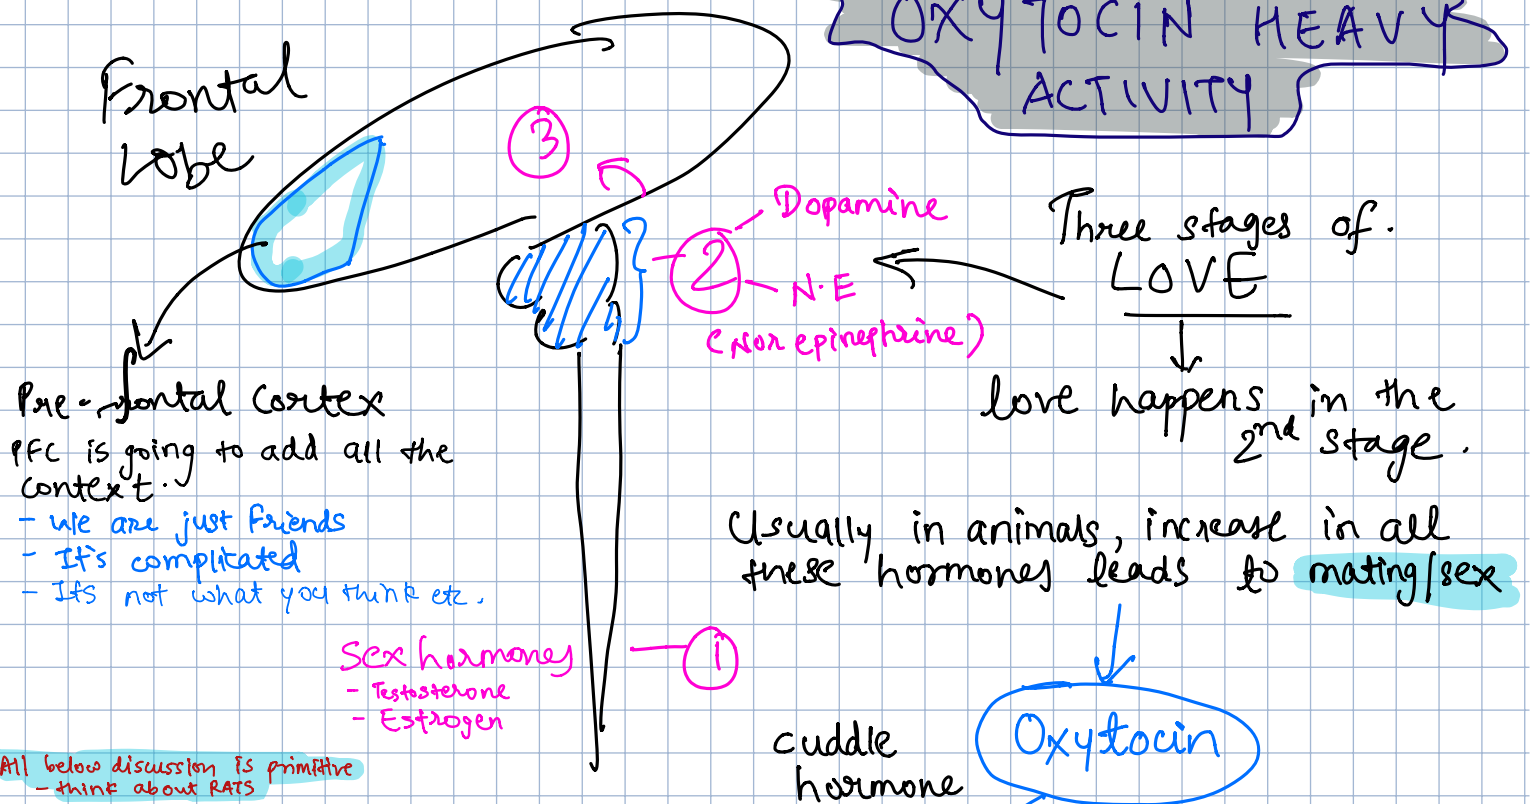 OXYTOCIN HEAVY
ACTIVITY
Frontal
Lobe
3
Dopamine
2
N.E
(Nor epinephrine)
Three stages of.
LOVE
love happens in the
2nd stage.
Pre-frontal cortex
PFC is going to add all the
context.
- We are just friends
- It's complicated
- It's not what you think etc.
Usually in animals, increase in all
these hormones leads to mating/sex
Sex hormones
1
- Testosterone
- Estrogen
Oxytocin
cuddle
hormone
All below discussion is primitive
- think about RATS